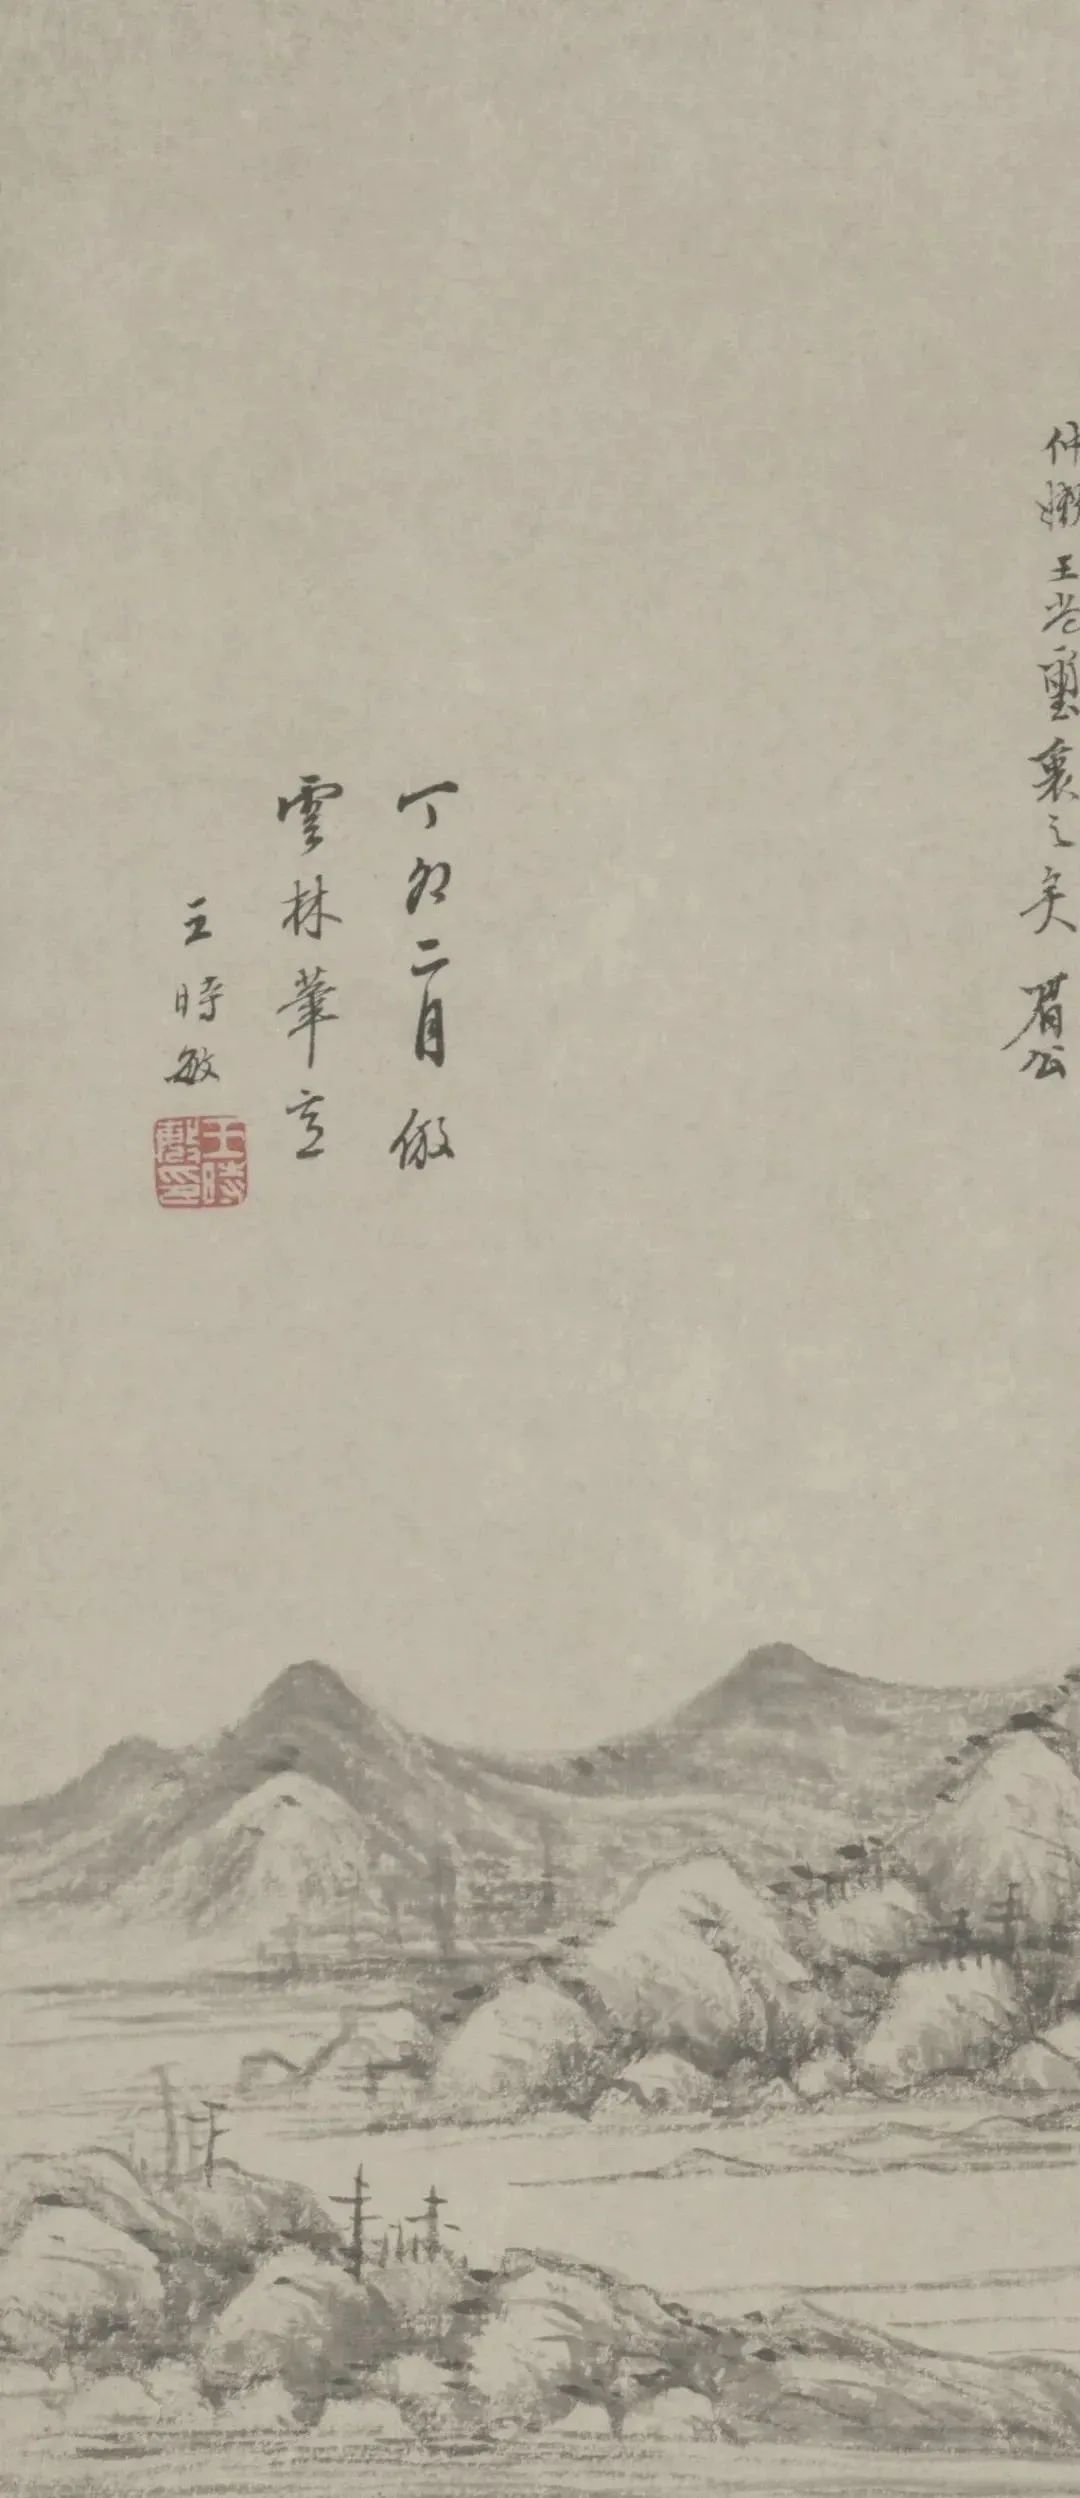 仲 王尚璽 之矣 眉公
丁卯二月倣
雲林筆意
王時敏
王時敏印